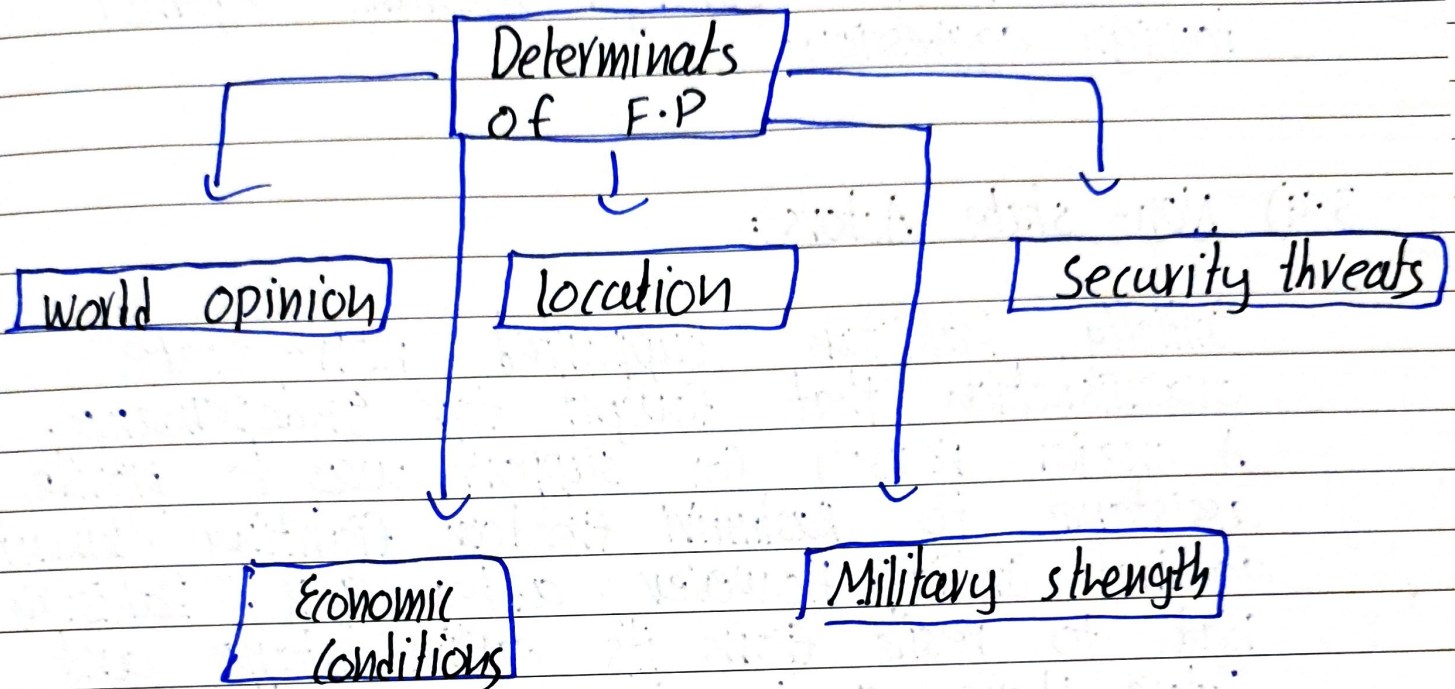 Determinats
of F.P
world opinion
location
security threats
Economic
conditions
Military strength